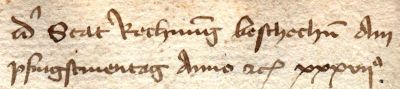 Stat Rechnung beschechn Am
pfingstmentag Anno etc xxxvii°